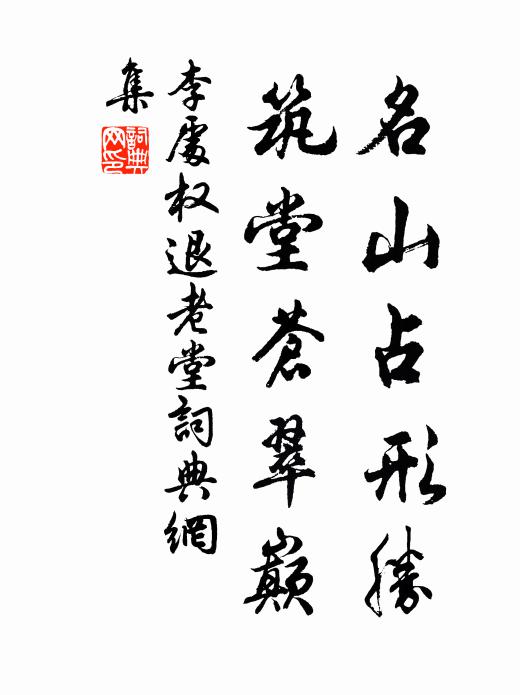 名山占形勝
筑堂蒼翠巔
李處权退老堂詞典網
集
詞典
网印